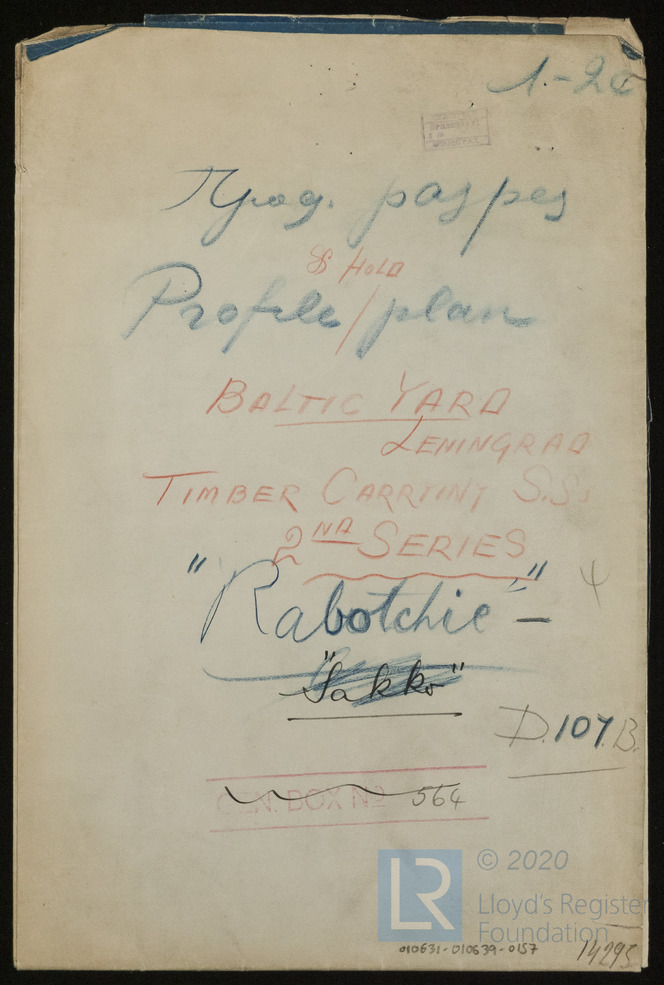 1-2с
Прод. разрез
& HOLD
Profile / plan
BALTIC YARD
LENINGRAD
TIMBER CARRYING S.S.
2ND SERIES
"Rabotchie" -
4
"Sakko"
D.107.B.
GEN. BOX No 564
LR
© 2020
Lloyd's Register
Foundation
010631-010639-0157
14293